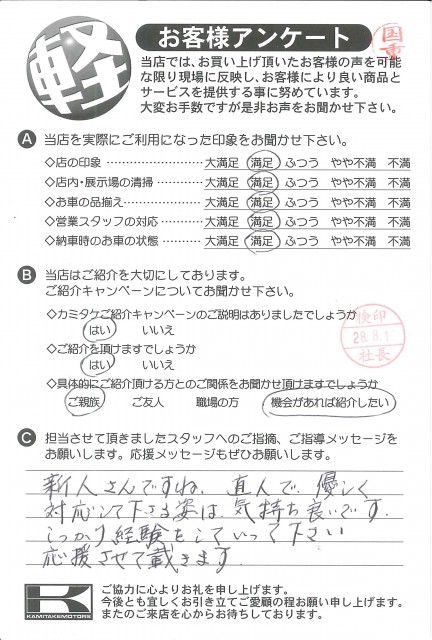 軽
お客様アンケート
国重
当店では、お買い上げ頂いたお客様の声を可能
な限り現場に反映し、お客様により良い商品と
サービスを提供する事に努めています。
大変お手数ですが是非お声をお聞かせ下さい。
A 当店を実際にご利用になった印象をお聞かせ下さい。
◇店の印象 ………………… 大満足 満足 ふつう やや不満 不満
◇店内・展示場の清掃 ………… 大満足 満足 ふつう やや不満 不満
◇お車の品揃え ……………… 大満足 満足 ふつう やや不満 不満
◇営業スタッフの対応 ………… 大満足 満足 ふつう やや不満 不満
◇納車時のお車の状態 ………… 大満足 満足 ふつう やや不満 不満
B 当店はご紹介を大切にしております。
ご紹介キャンペーンについてお聞かせ下さい。
◇カミタケご紹介キャンペーンのご説明はありましたでしょうか
はい いいえ
◇ご紹介を頂けますでしょうか
はい いいえ
◇具体的にご紹介頂ける方とのご関係をお聞かせ頂けますでしょうか
ご親族 ご友人 職場の方 機会があれば紹介したい
検印
28.8.1
社長
C 担当させて頂きましたスタッフへのご指摘、ご指導メッセージを
お願いします。応援メッセージもぜひお願いします。
新人さんですね。直人で、優しく
対応して下さる姿は、気持ち良いです。
しっかり経験をしていって下さい
応援させて戴きます。
K
KAMITAKEMOTORS
ご協力に心よりお礼を申し上げます。
今後とも宜しくお引き立てご愛顧の程お願い申し上げます。
またのご来店を心からお待ちしております。